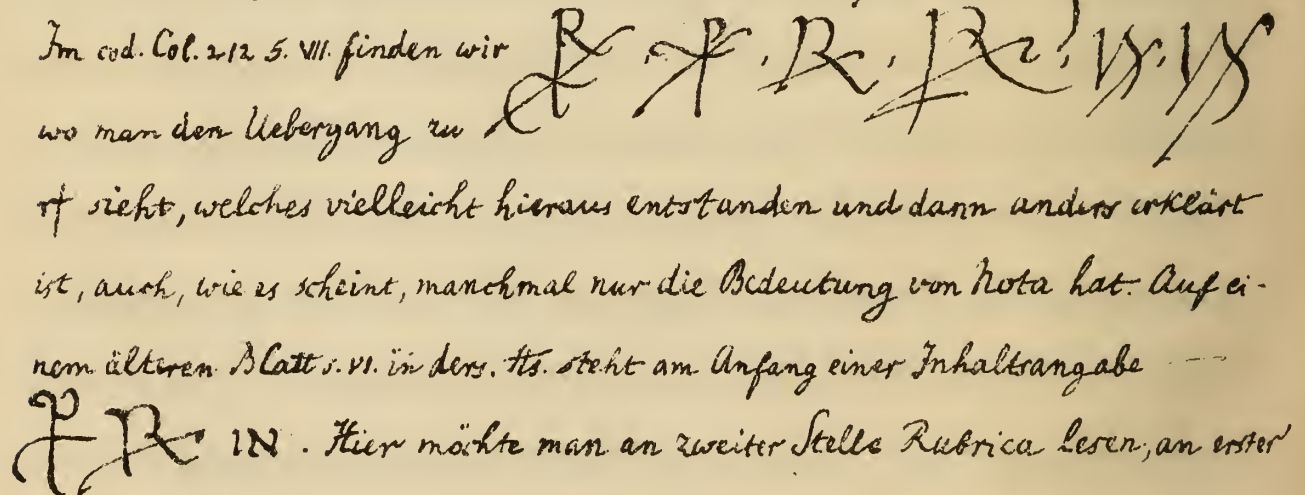 Im cod. Col. 212 s. VII. finden wir
wo man den Uebergang zu
rt sieht, welches vielleicht hieraus entstanden und dann anders erklärt
ist, auch, wie es scheint, manchmal nur die Bedeutung von Nota hat. Auf ei-
nem älteren Blatt s. VI. in ders. Hs. steht am Anfang einer Inhaltsangabe
IN. Hier möchte man an zweiter Stelle Rubrica lesen, an erster